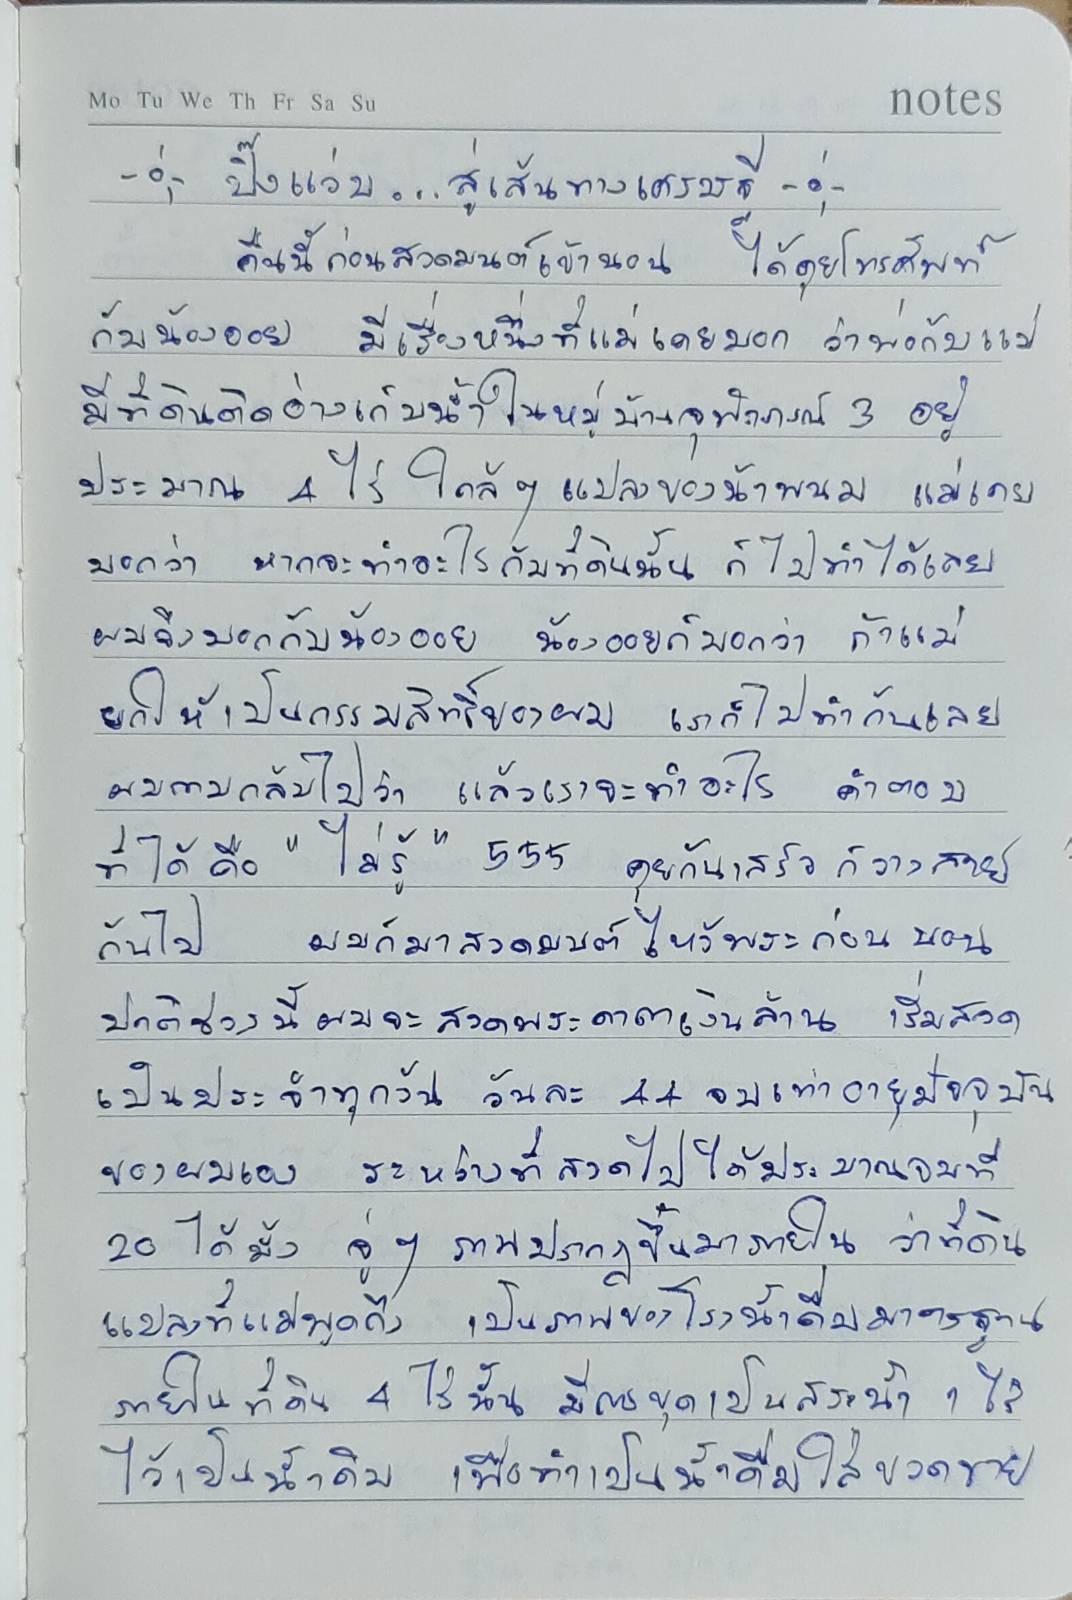 Mo Tu We Th Fr Sa Su
notes
ปิ๊งแว่บ...สู่เส้นทางเศรษฐี
คืนนี้ก่อนสวดมนต์เข้านอน ได้คุยโทรศัพท์
กับน้องออย มีเรื่องหนึ่งที่แม่เคยบอก ว่าพ่อกับแม่
มีที่ดินติดอ่างเก็บน้ำในหมู่บ้านจุฬาภรณ์ 3 อยู่
ประมาณ 4 ไร่ ใกล้ๆ แปลงของน้าพนม แม่เคย
บอกว่า หากจะทำอะไรกับที่ดินนั้น ก็ไปทำได้เลย
ผมจึงบอกกับน้องออย น้องออยก็บอกว่า ถ้าแม่
ยกให้เป็นกรรมสิทธิ์ของผม เราก็ไปทำกันเลย
ผมถามกลับไปว่า แล้วเราจะทำอะไร คำตอบ
ที่ได้คือ "ไม่รู้" 555 คุยกันเสร็จ ก็วางสาย
กันไป ผมก็มาสวดมนต์ไหว้พระก่อนนอน
ปกติช่วงนี้ผมจะสวดพระคาถาเงินล้าน เริ่มสวด
เป็นประจำทุกวัน วันละ 44 จบเท่าอายุปัจจุบัน
ของผมเอง ระหว่างที่สวดไปได้ประมาณจบที่
20 ได้มั้ง จู่ๆ ภาพปรากฏขึ้นมาภายใน ว่าที่ดิน
แปลงที่แม่พูดถึง เป็นภาพของโรงน้ำดื่มมาตรฐาน
ภายในที่ดิน 4 ไร่นั้น มีการขุดเป็นสระน้ำ 1 ไร่
ไว้เป็นน้ำดิบ เพื่อทำเป็นน้ำดื่มใส่ขวดขาย